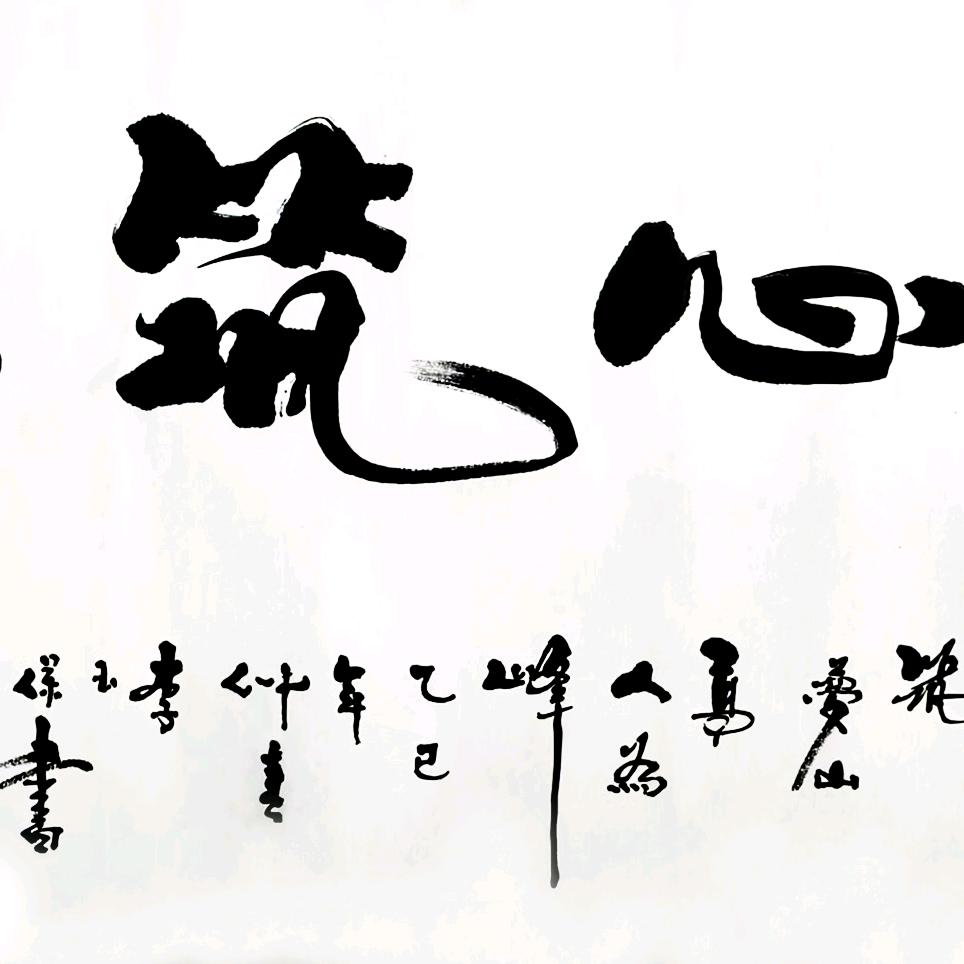 心筑
筑夢山高人為峰乙巳年仲春李玉保書